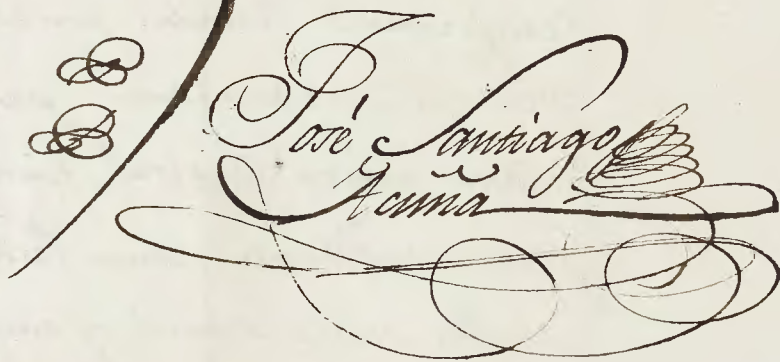 José Santiago
Acuña